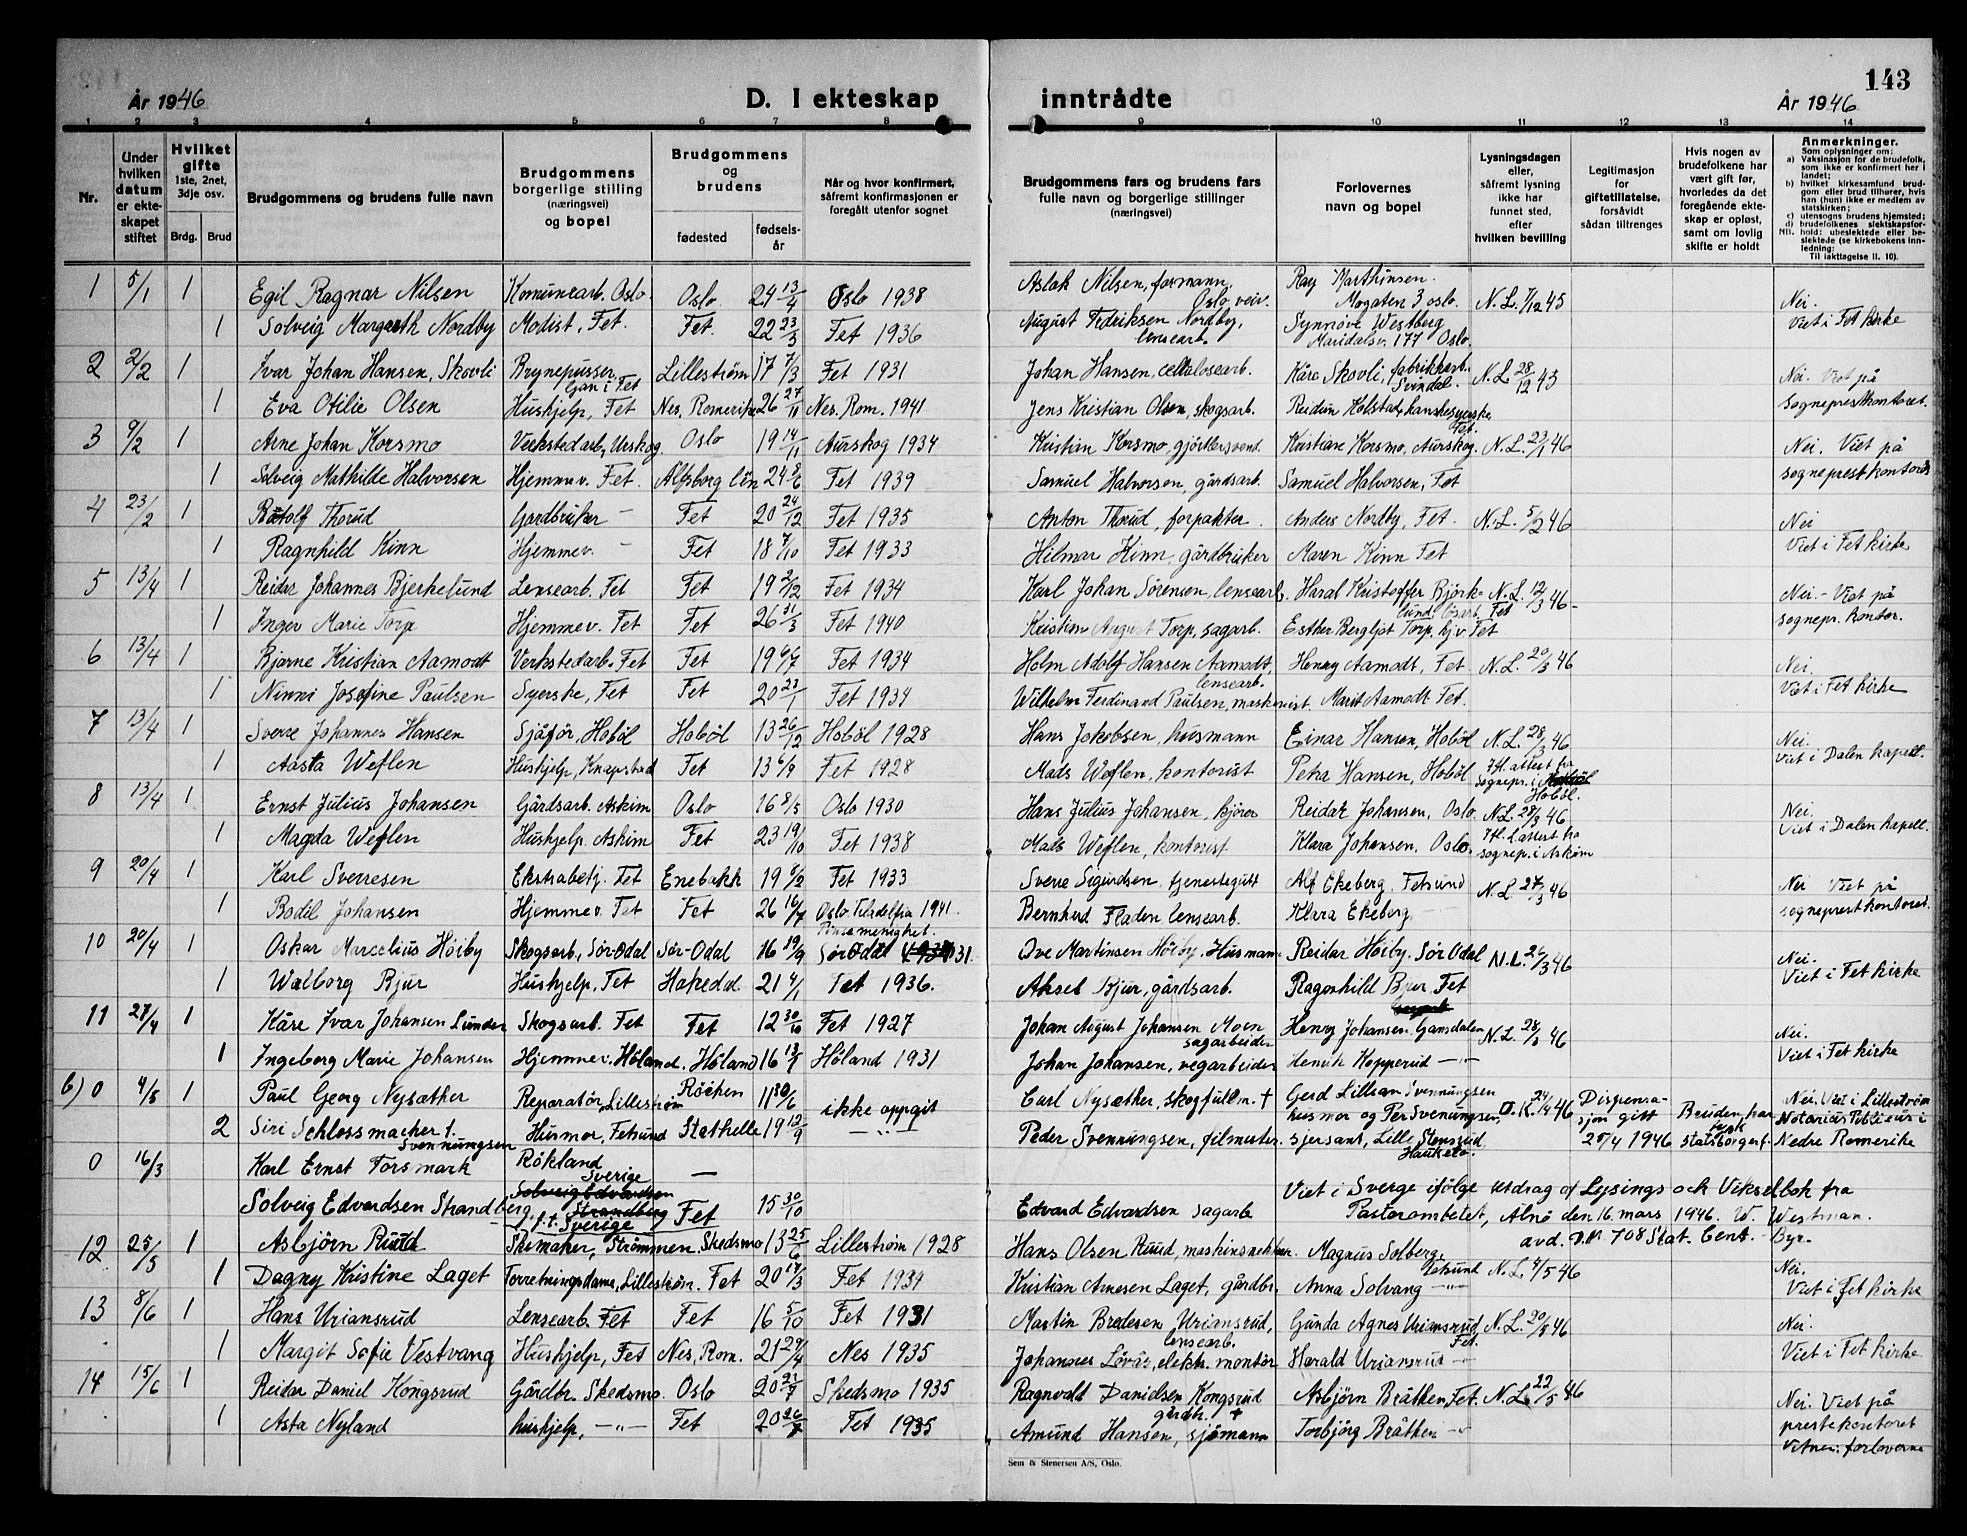 143
År 1946 D. I ekteskap inntrådte År 1946
1 2 3 4 5 6 7 8 9 10 11 12 13 14
Nr.
Under hvilken datum er ekteskapet stiftet
Hvilket gifte 1ste, 2net, 3dje osv.
Brdg. Brud
Brudgommens og brudens fulle navn
Brudgommens borgerlige stilling (næringsvei) og bopel
Brudgommens og brudens
fødested fødselsår
Når og hvor konfirmert, såfremt konfirmasjonen er foregått utenfor sognet
Brudgommens fars og brudens fars fulle navn og borgerlige stillinger (næringsvei)
Forlovernes navn og bopel
Lysningsdagen eller, såfremt lysning ikke har funnet sted, efter hvilken bevilling
Legitimasjon for giftetillatelse, forsåvidt sådan tiltrenges
Hvis nogen av brudefolkene har vært gift før, hvorledes da det foregående ekteskap er opløst, samt om lovlig skifte er holdt
Anmerkninger.
Som oplysninger om:
a) Vaksinasjon for de brudefolk, som ikke er konfirmert her i landet;
b) hvilket kirkesamfund brudgom eller brud tilhører, hvis han (hun) ikke er medlem av statskirken;
c) utensogns brudens hjemsted;
d) brudefolkenes slektskapsforhold: ubeslektede eller beslektede (se kirkebokens innledning;
NB. Til iakttagelse II. 10).
1 5/1 1 Egil Ragnar Nilsen Komunearb. Oslo. Oslo 24 13/4 Oslo 1938 Aslak Nilsen, formann, Oslo veiv. Roy Marthinsen. Mogaten 3 oslo. N.L. 7/12 45 Nei.
1 Solveig Margreth Nordby Modist, Fet. Fet. 22 23/3 Fet 1936 August Fredriksen Nordby, lensearb. Synnøve Westberg Maridalsv 177 Oslo. Viet i Fet kirke
2 2/2 1 Ivar Johan Hansen, Skovli Brynepusser, Gan i Fet Lillestrøm 17 7/3 Fet 1931 Johan Hansen, cellulosearb. Kåre Skovli, fabrikkarb. Svindal. N.L. 28/12 43 Nei. Viet på
1 Eva Otilie Olsen Hushjelp, Fet Nes, Romerike 26 27/11 Nes. Rom. 1941 Jens Kristian Olsen, skogsarb. Reidun Holstad, hanskesyerske Fet. sogneprestkontoret.
3 9/2 1 Arne Johan Korsmo Verkstedarb, Urskog. Oslo 19 14/11 Aurskog 1934 Kristian Korsmo, gjørtlersvend. Kristiane Korsmo, Aurskog. N.L. 23/1 46 Nei. Viet på
1 Solveig Mathilde Halvorsen Hjemmev. Fet. Alfsborg län 24 8/6 Fet 1939 Samuel Halvorsen, gårdsarb. Samuel Halvorsen, Fet sogneprestkontoret
4 23/2 1 Botolf Thorud Gardbruker — Fet 20 24/12 Fet 1935 Anton Thorud, forpakter. Anders Nordby, Fet. N.L. 5/2 46 Nei
1 Ragnhild Kinn Hjemmev. — Fet 18 7/10 Fet 1933 Hilmar Kinn, gårdbruker Maren Kinn Fet Viet i Fet kirke
5 13/4 1 Reidar Johannes Bjerkelund Lensearb. Fet Fet 19 2/12 Fet 1934 Karl Johan Sörensen, lensearb. Harald Kristoffer Björkelund, løsarb. Fet N.L. 12/3 46 - Nei. - Viet på
1 Inger Marie Torp Hjemmev. Fet Fet 26 31/3 Fet 1940 Kristian August Torp, sagarb. Esther Bergljot Torp, hj.v Fet sognepr. kontor.
6 13/4 1 Bjarne Kristian Aamodt Verkstedarb. Fet Fet 19 6/7 Fet 1934 Holm Adolf Hansen Aamodt, lensearb. Henry Aamodt, Fet N.L. 20/3 46 Nei
1 Ninni Josefine Paulsen Syerske, Fet Fet 20 23/1 Fet 1934 Wilhelm Ferdinand Paulsen, maskinist. Marit Aamodt Fet. Viet i Fet kirke
7 13/4 1 Sverre Johannes Hansen Sjåfør, Hobøl Hobøl 13 26/12 Hobøl 1928 Hans Jakobsen, husmann Einar Hansen, Hobøl N.L. 28/3 46 Nei.
1 Aasta Weflen Hushjelp, Knapstad Fet 13 6/9 Fet 1928 Mads Weflen, kontorist Petra Hansen, Hobøl Ifl. attest fra sognepr. i Hobøl. Viet i Dalen kapell.
8 13/4 1 Ernst Julius Johansen Gårdsarb. Askim Oslo 16 8/5 Oslo 1930 Hans Julius Johansen, kjører Reidar Johansen, Oslo N.L. 28/3 46 Nei.
1 Magda Weflen Hushjelp, Askim Fet 23 19/10 Fet 1938 Mads Weflen, kontorist Klara Johansen, Oslo. Ifl. attest fra sognepr. i Askim Viet i Dalen kapell.
9 20/4 1 Karl Sverresen Ekstrabetj. Fet Enebakk 19 6/2 Fet 1933 Sverre Sigurdsen, tjenestegutt Alf Ekeberg. Fetsund N.L. 27/3 46 Nei Viet på
1 Bodil Johansen Hjemmev. Fet Fet 26 16/7 Oslo. Filadelfia 1941. Pinsemenighet. Bernhard Fladen lensearb. Klara Ekeberg sogneprestkontoret.
10 20/4 1 Oskar Marcelius Höiby Skogsarb, Sör-Odal Sör-Odal 16 19/9 Sör Odal 1931. Ove Martinsen Höiby. Husmann Reidar Höiby. Sör Odal N.L. 26/3 46 Nei.
1 Walborg Bjur Hushjelp, Fet Hakedal 21 4/1 Fet 1936. Aksel Bjur, gårdsarb. Ragnhild Bjur, Fet Viet i Fet kirke
11 27/4 1 Kåre Ivar Johansen Lunder Skogsarb. Fet Fet 12 30/10 Fet 1927 Johan August Johansen Moen sagarbeider Henry Johansen. Gansdalen N.L. 28/3 46 Nei.
1 Ingeborg Marie Johansen Hjemmev. Høland. Høland 16 13/5 Høland 1931 Johan Johansen, vegarbeider Henrik Kopperud —"— Viet i Fet kirke
6) 0 4/5 1 Paul Georg Nysæther Reparatør, Lillestrøm Røyken 11 30/6 ikke oppgit Carl Nysæther, skogfullm. † Gerd Lillian Svenningsen husmor og Per Svenningsen, O.K. 24/4 46 Dispensasjon gitt 25/4 1946 Bruden har tysk statsborgersk. Nei. Viet i Lillestrøm
2 Siri Schlossmacher f. Svennungsen Husmor, Fetsund Stathelle 19 12/9 —"— Peder Svennungsen, filmester. sjersant, Lille Stensrud, Hauketo. Notarius Publicus i Nedre Romerike
0 16/3 Karl Ernst Forsmark Rökland Sverige —
Solveig Edvardsen Strandberg f.t. Sverige Fet 15 30/10 Edvard Edvardsen sagarb. Viet i Sverge ifølge utdrag af Lysings och Viksel bok fra Pastorambetet, Alnö den 16. mars 1946. W. Westman. avd. D.N. 708 Stat. Cent. Byr.
12 25/5 1 Asbjörn Ruud Skimaker, Strömmen. Skedsmo 13 25/6 Lillestrøm 1928 Hans Olsen Ruud, maskinsnekker. Magnus Solberg, Fetsund N.L. 4/5 46 Nei.
1 Dagny Kristine Laget Forretningsdame, Lillestrøm. Fet 20 17/3 Fet 1934 Kristian Arnesen Laget, gårdbr. Anna Solvang —"— Viet i Fet kirke
13 8/6 1 Hans Uriansrud Lensearb. Fet Fet 16 5/10 Fet 1931 Martin Bredesen Uriansrud, lensearb. Gunda Agnes Uriansrud, Fet. N.L. 20/5 46 Nei.
1 Margit Sofie Vestvang Hushjelp, Fet Nes, Rom. 21 29/4 Nes 1935 Johannes Lövås, elektr. montør Harald Uriansrud —"— Viet i Fet kirke
14 15/6 1 Reidar Daniel Kongsrud Gårdbr. Skedsmo Oslo 20 21/7 Skedsmo 1935 Ragnvald Danielsen Kongsrud gårdb. † Asbjörn Bråthen, Fet. N.L. 22/5 46 Nei. Viet på
1 Asta Nyland hushjelp, —"— Fet 20 26/7 Fet 1935 Amund Hansen, sjømann Torbjörg Bråthen —"— prestekontoret
Vitner: forloverne
Sem & Stenersen A/S, Oslo.